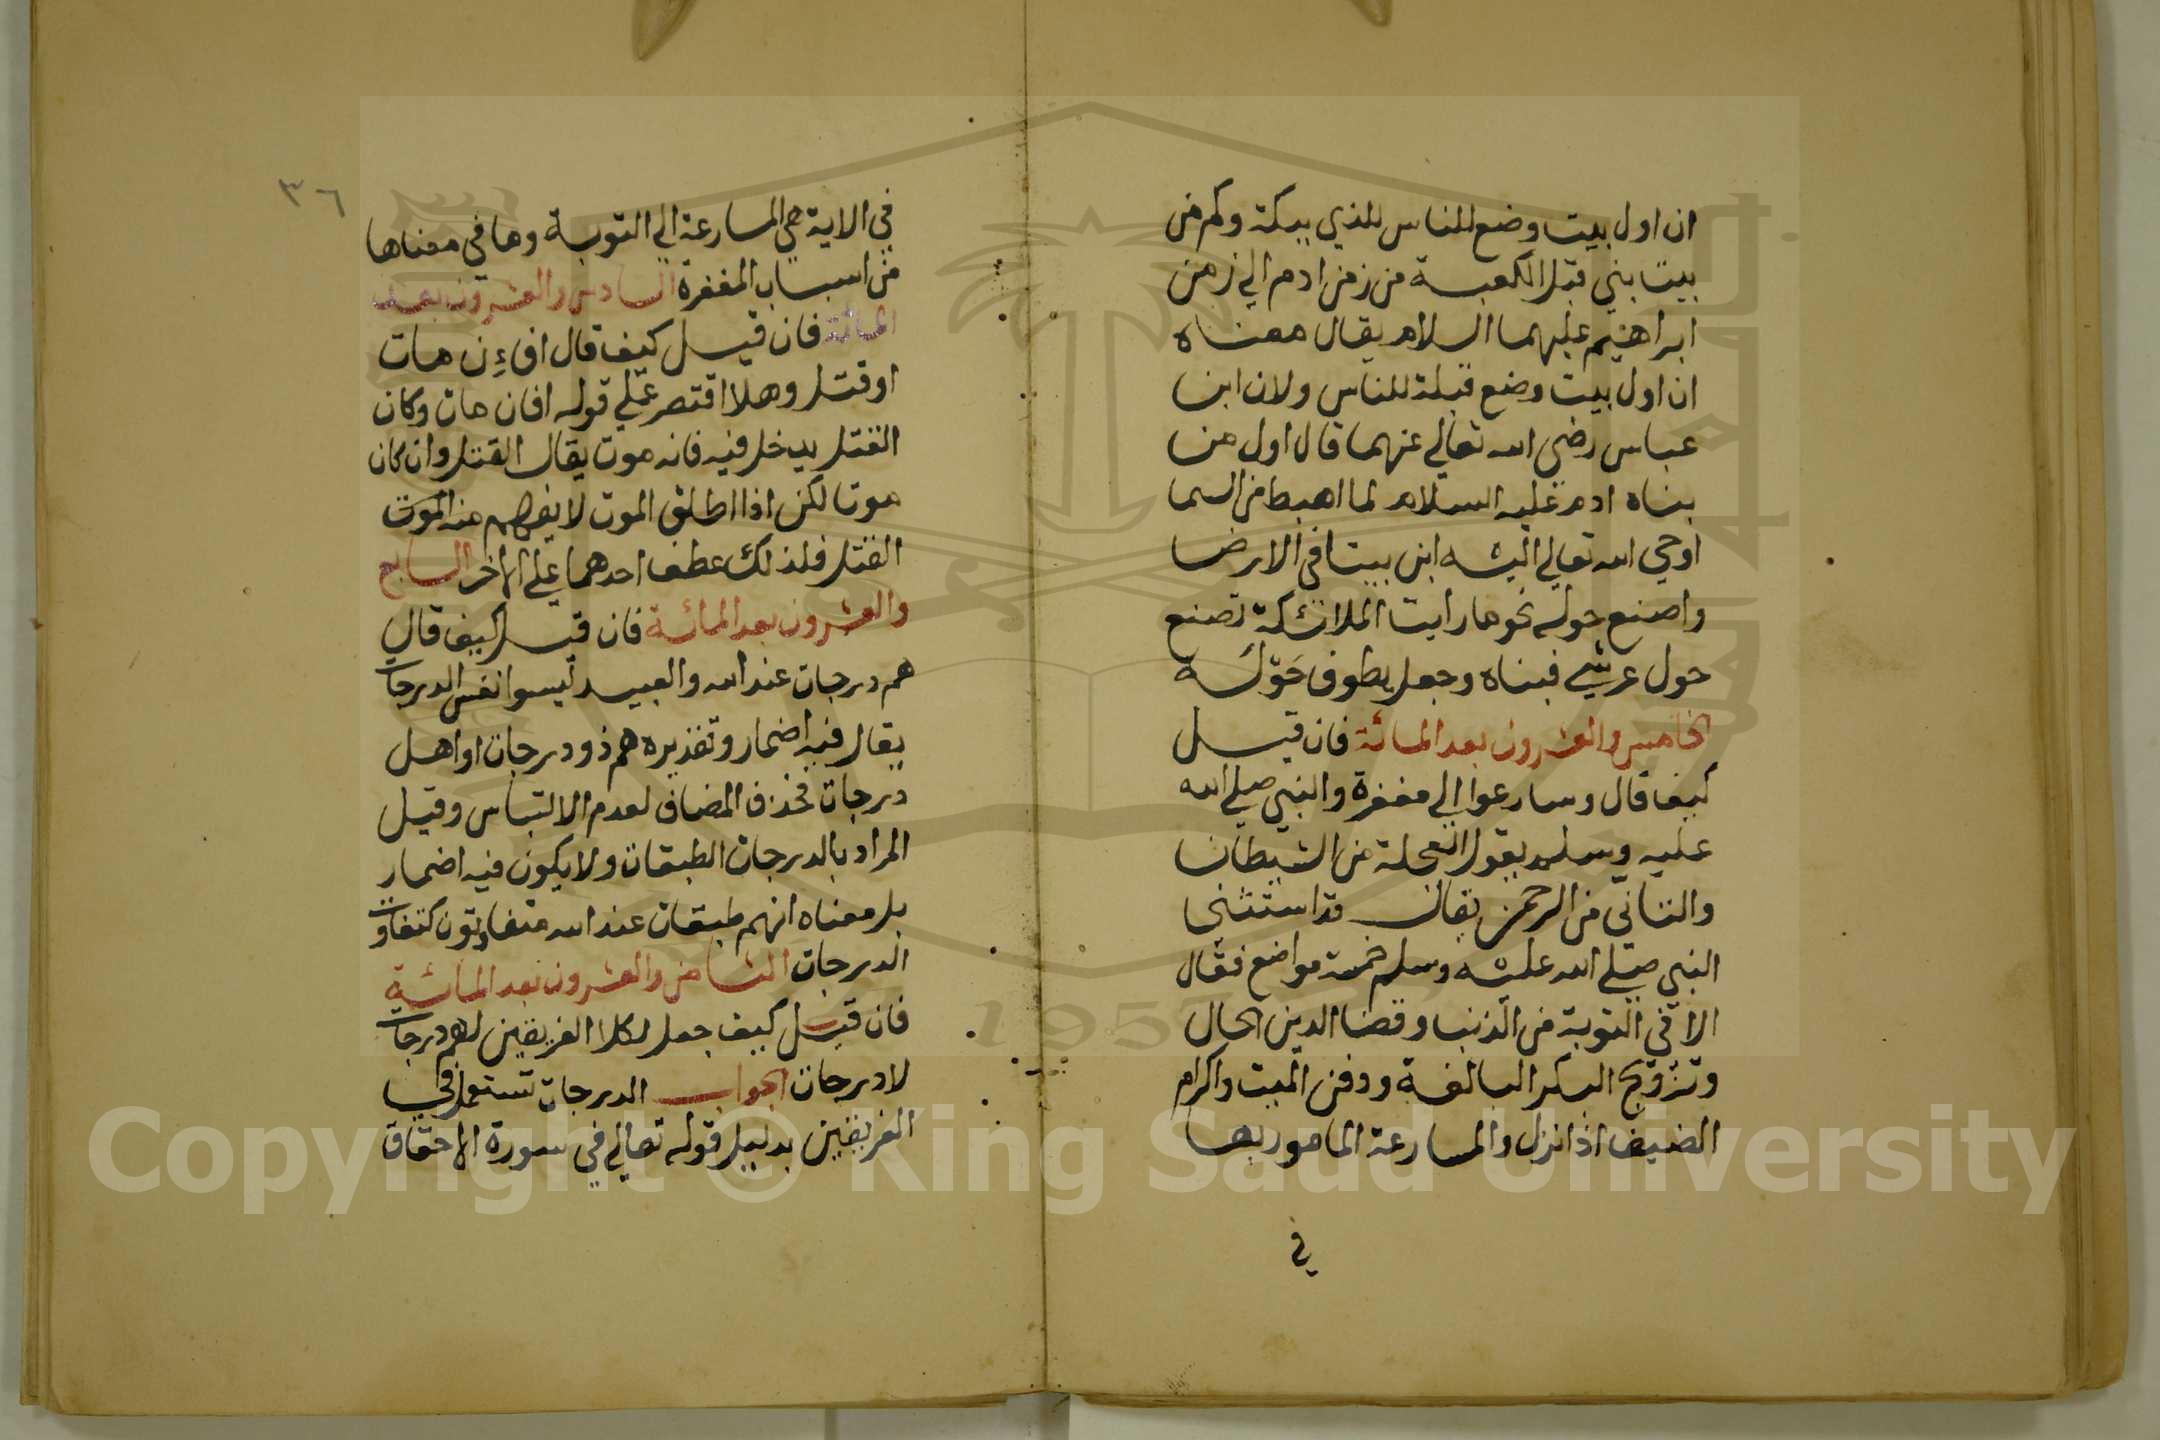 ان اول بيت وضع للناس للذي ببكة وكم من
بيت بني قبل الكعبة من زمن ادم الي زمن
ابراهيم عليهما السلام يقال معناه
ان اول بيت وضع قبلة للناس ولان ابن
عباس رضي الله تعالي عنهما قال اول من
بناه ادم عليه السلام لما اهبط من السما
اوحي الله تعالي اليه ابن بيتا في الارض
واصنع حوله نحو ما رايت الملائكة تصنع
حول عرشي فبناه وجعل يطوف حَوْلَه
الخامس والعشرون بعد المائة فان قيل
كيف قال وسارعوا الي مغفرة والنبي صلي الله
عليه وسلم يقول العجلة من الشيطان
والتاني من الرحمن يقال قد استثني
النبي صلي الله عليه وسلم خمسة مواضع فقال
الا في التوبة من الذنب وقضا الدين الحال
وتزويج البكر البالغة ودفن الميت واكرام
الضيف اذا نزل والمسارعة المامور بها
في
٣٦
في الاية هي المسارعة الي التوبة وما في معناها
من اسباب المغفرة السادس والعشرون بعد
المائة فان قيل كيف قال افاءن مات
او قتل وهلا اقتصر علي قوله افان مات وكان
القتل يدخل فيه فانه موت يقال القتل وان كان
موتا لكن اذا اطلق الموت لا يفهم منه الموت
القتل فلذلك عطف احدهما علي الاخر السابع
والعشرون بعد المائة فان قيل كيف قال
هم درجات عند الله والعبيد ليسوا نفس الدرجات
يقال فيه اضمار وتقديره هم ذوو درجات او اهل
درجات فحذف المضاف لعدم الالتباس وقيل
المراد بالدرجات الطبقات ولا يكون فيه اضمار
بل معناه انهم طبقات عند الله متفاوتون كتفاوت
الدرجات الثامن والعشرون بعد المائة
فان قيل كيف جعل لكلا الفريقين لهم درجات
لا درجات الجواب الدرجات تستعمل في
الفريقين بدليل قوله تعالي في سورة الاحقاف
Copyright © King Saud University
1957